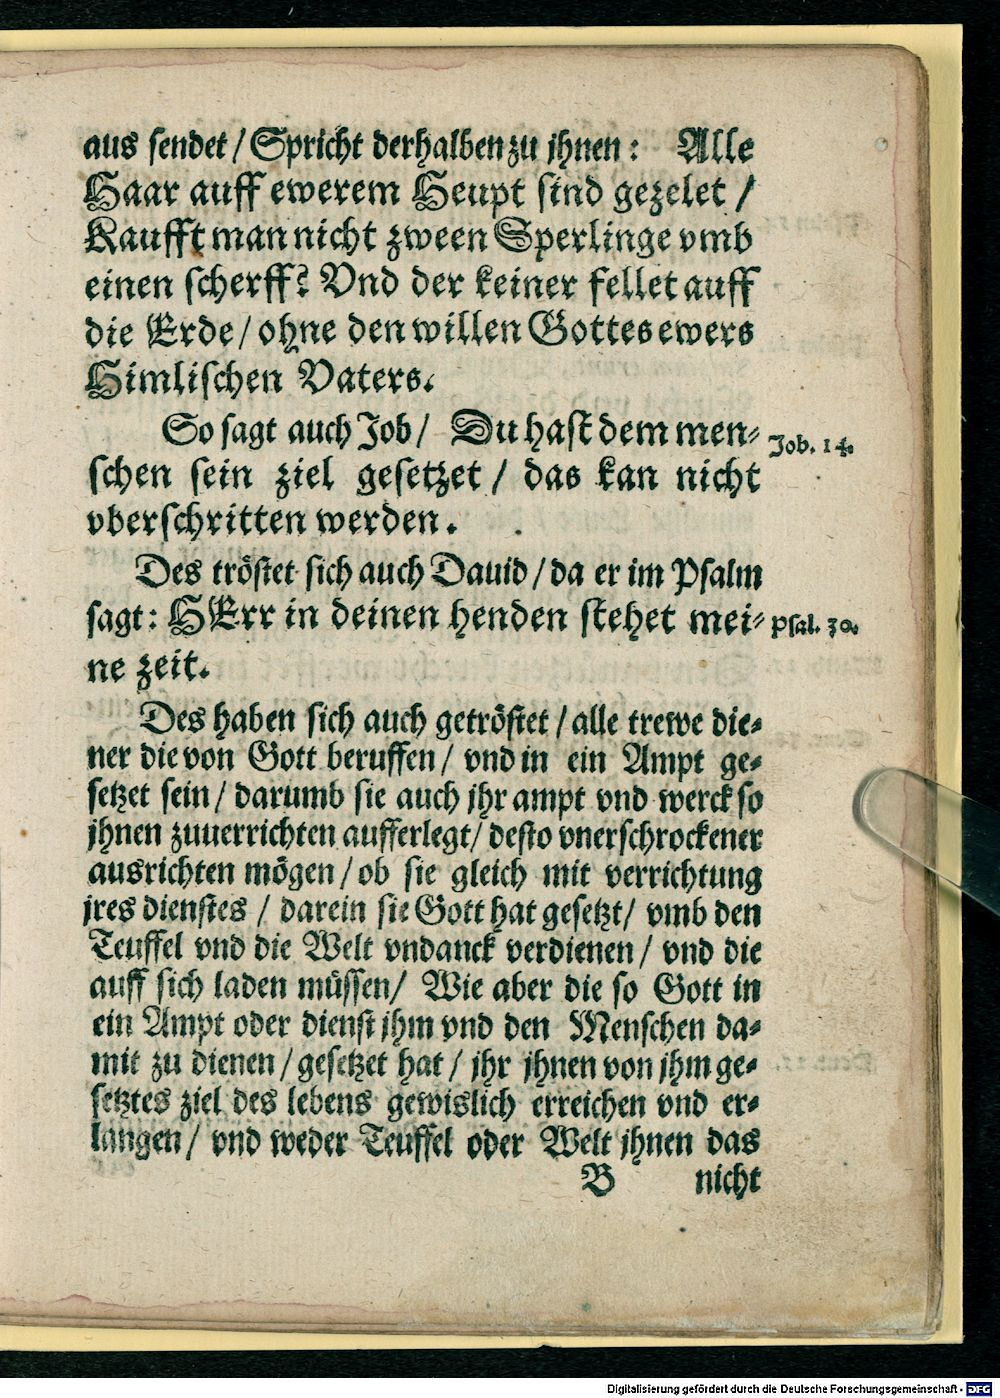 aus sendet / Spricht derhalben zu jhnen : Alle
Haar auff ewerem Heupt sind gezelet /
Kaufft man nicht zween Sperlinge vmb
einen scherff? Vnd der keiner fellet auff
die Erde / ohne den willen Gottes ewers
Himlischen Vaters.
So sagt auch Job / Du hast dem men-
Job. 14.
schen sein ziel gesetzet / das kan nicht
vberschritten werden.
Des tröstet sich auch Dauid / da er im Psalm
sagt: HErr in deinen henden stehet mei-
Psal. 30.
ne zeit.
Des haben sich auch getröstet / alle trewe die-
ner die von Gott beruffen / vnd in ein Ampt ge-
setzet sein / darumb sie auch jhr ampt vnd werck so
jhnen zuuerrichten aufferlegt / desto vnerschrockener
ausrichten mögen / ob sie gleich mit verrichtung
jres dienstes / darein sie Gott hat gesetzt / vmb den
Teuffel vnd die Welt vndanck verdienen / vnd die
auff sich laden müssen / Wie aber die so Gott in
ein Ampt oder dienst jhm vnd den Menschen da-
mit zu dienen / gesetzet hat / jhr jhnen von jhm ge-
setztes ziel des lebens gewislich erreichen vnd er-
langen / vnd weder Teuffel oder Welt jhnen das
B nicht
Digitalisierung gefördert durch die Deutsche Forschungsgemeinschaft - DFG